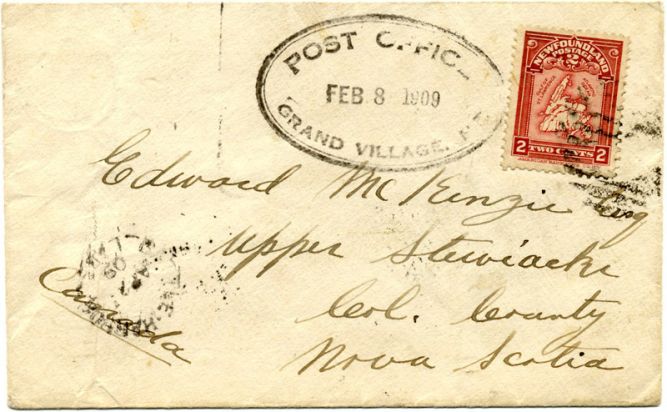 POST OFFICE
FEB 8 1909
GRAND VILLAGE,
NEWFOUNDLAND
POSTAGE
2
2 TWO CENTS 2
Edward McKenzie Esq
Upper Stewiacke
Col. County
Nova Scotia
Canada